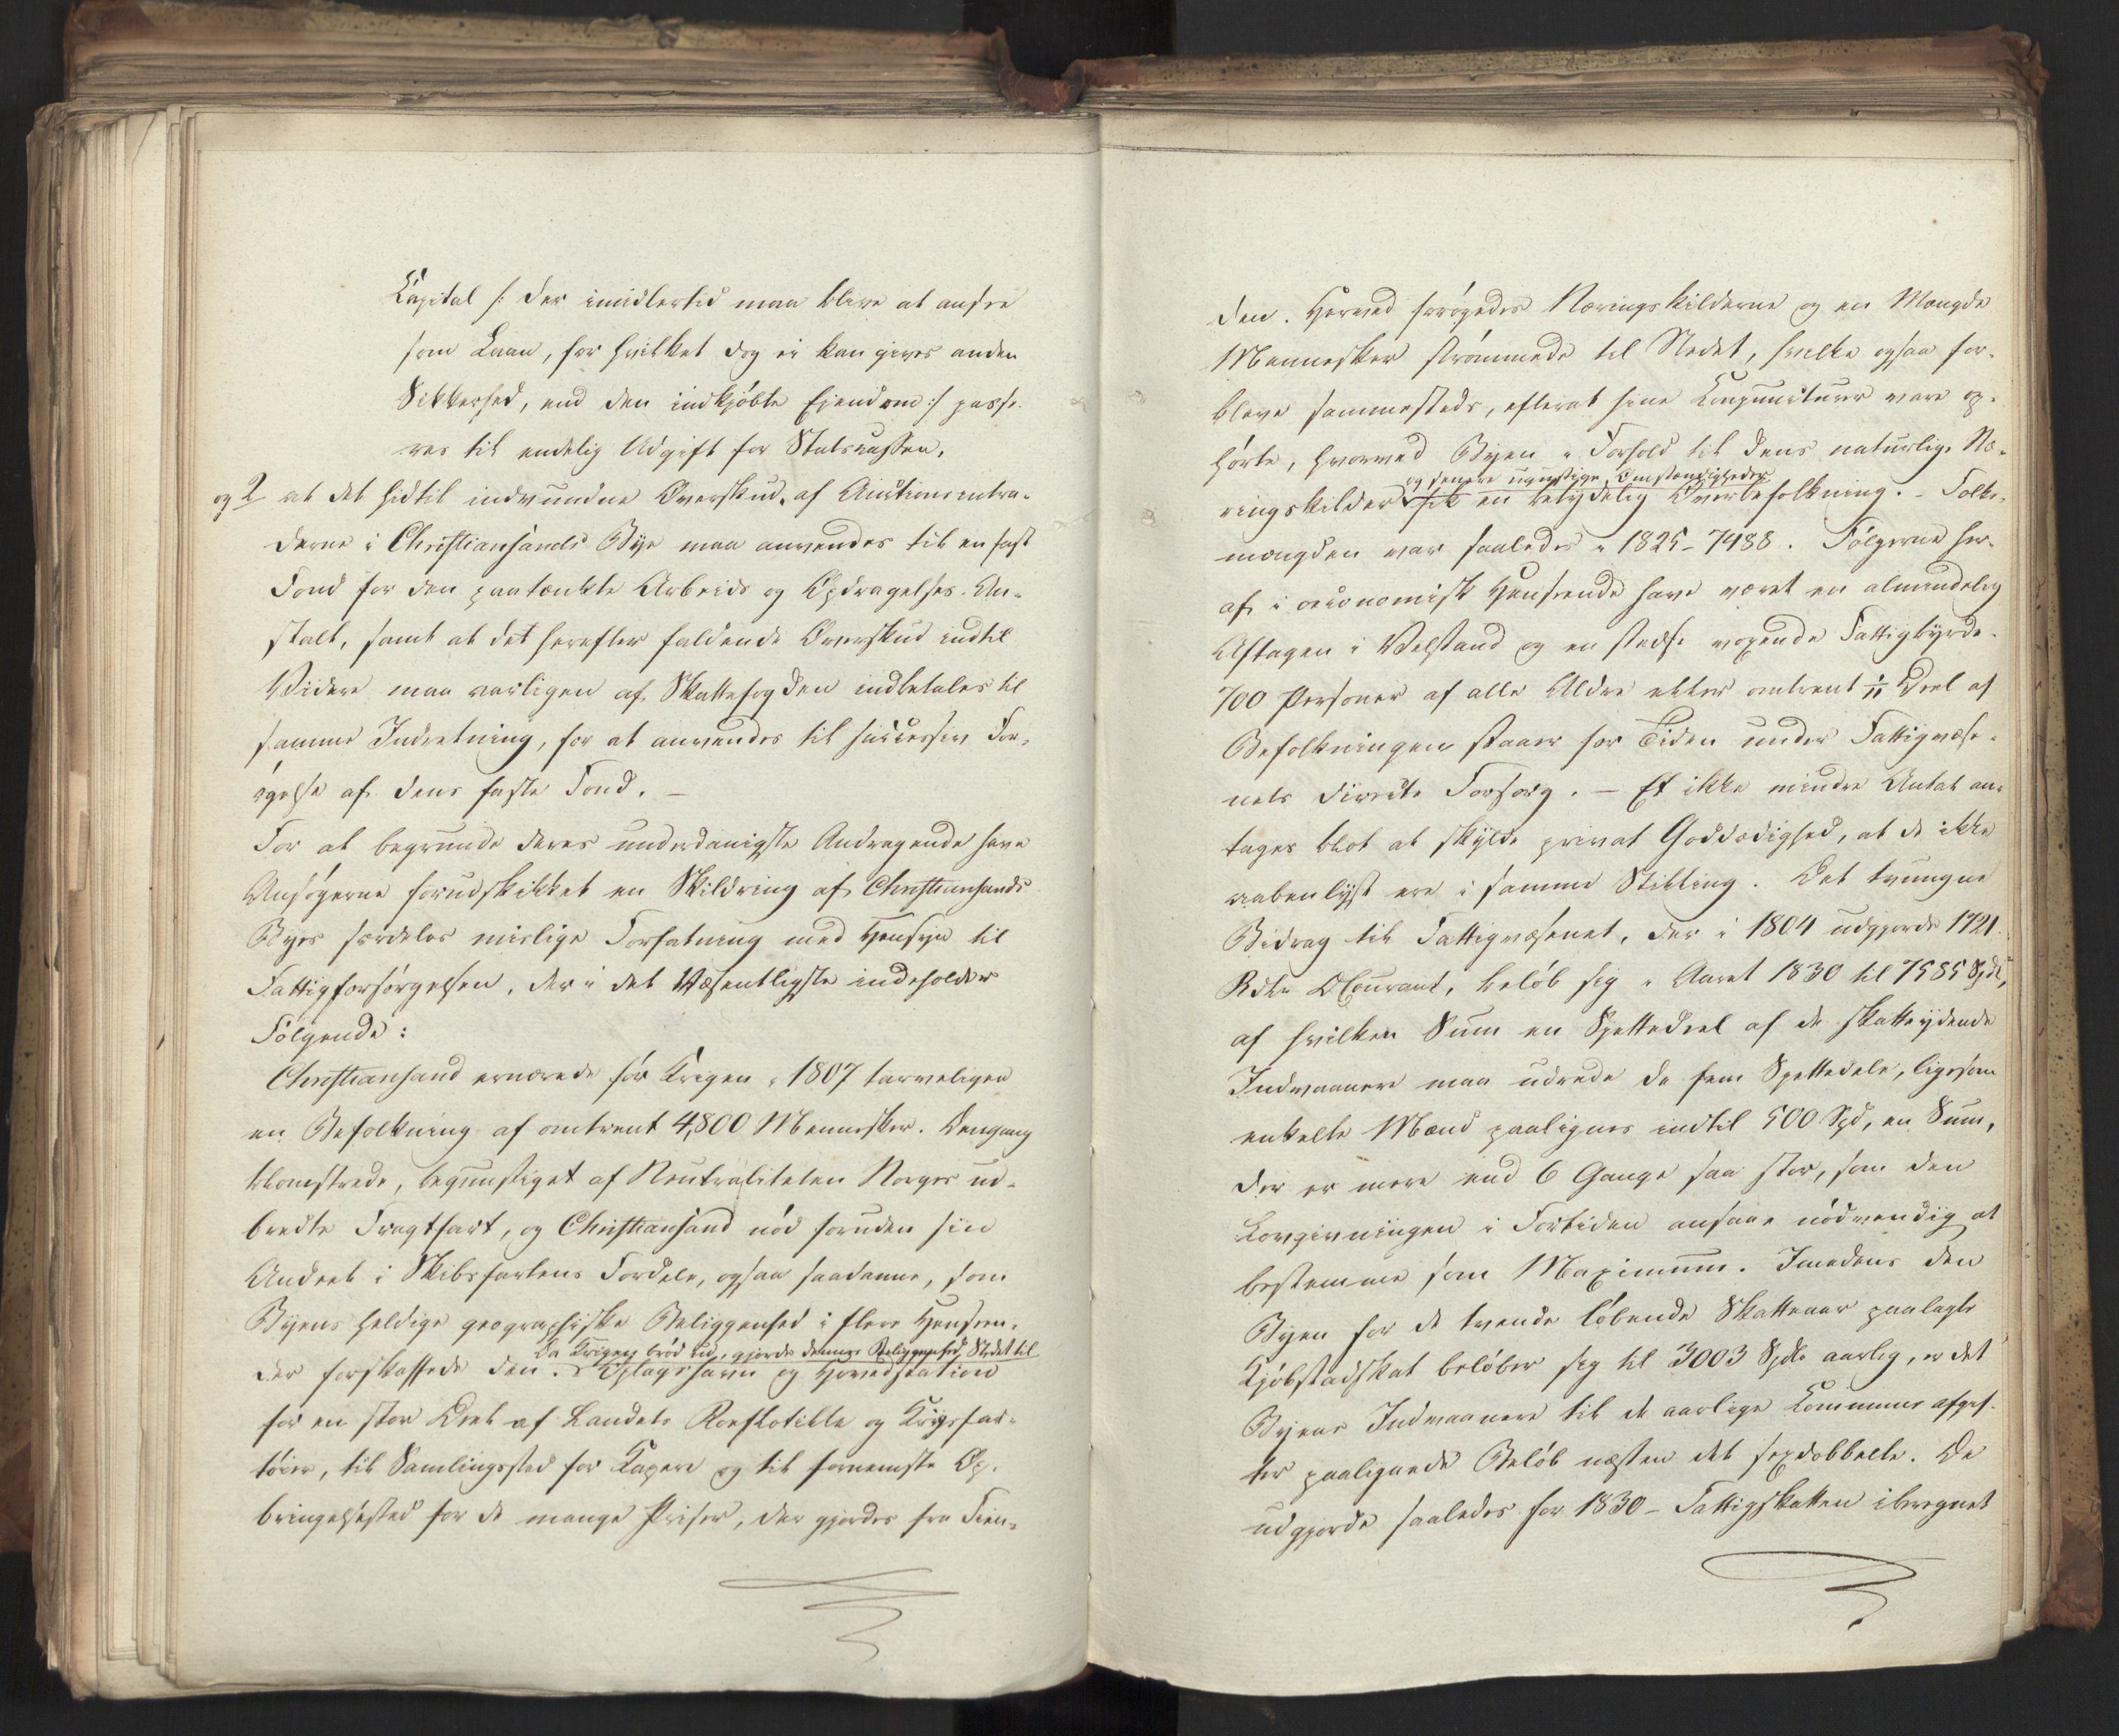 Capital /: der imidlertid maa blive at ansee
som Laan, for hvilket dog ei kan gives anden
Sikkerhed, end den indkjöbte Ejendom :/ passe-
res til endelig Udgift for Statscassen,
og 2 at det hidtil indvundne Overskud af Auctionsintra-
derne i Christiansands Bye maa anvendes til en fast
Fond for den paatænkte Arbeids og Opdragelses-An-
stalt, samt at det herefter faldende Overskud indtil
Videre maa aarligen af Skattefogden indbetales til
samme Indretning, for at anvendes til successiv For-
ögelse af dens faste Fond. —
For at begrunde deres underdanigste Andragende have
Ansögerne forudskikket en Skildring af Christiansands
Byes særdeles mislige Forfatning med Hensyn til
Fattigforsörgelsen, der i det Væsentligste indeholder
Fölgende:
Christiansand ernærede för Krigen i 1807 tarveligen
en Befolkning af omtrent 4,800 Mennesker. Dengang
blomstrede, begunstiget af Neutraliteten Norges ud-
bredte Fragtfart, og Christiansand nöd foruden sin
Andeel i Skibsfartens Fordele, ogsaa saadanne, som
Byens heldige geographiske Beliggenhed i flere Henseen-
Da Krigen bröd ud, gjorde dennes Beliggenhed Stedet til
der forskaffede den. Oplagshavn og Hovedstation
for en stor Deel af Landets Roeflotille og Krigsfar-
töier, til Samlingssted for Kapere og til fornemste Op-
bringelsessted for de mange Priser, der gjordes fra Fien-
den. Herved forögedes Næringskilderne og en Mængde
Mennesker strömmede til Stedet, hvilke ogsaa for-
bleve sammesteds, efterat hine Conjuncturer vare op-
hörte, hvorved Byen i Forhold til dens naturlige Næ-
og senere ugunstige Omstændigheder
ringskilder fik en betydelig Overbefolkning. - Folke-
mængden var saaledes i 1825 - 7488. Fölgerne her-
af i oeconomisk Henseende have været en almindelig
Aftagen i Velstand og en stedse voxende Fattigbyrde.
700 Personer af alle Aldre eller omtrent 1/11 Deel af
Befolkningen staaer for Tiden under Fattigvæse-
nets directe Forsorg. — Et ikke mindre Antal an-
tages blot at skylde privat Godgjørenhed, at de ikke
aabenlyst ere i samme Stilling. Det tvungne
Bidrag til Fattigvæsenet, der i 1804 udgjorde 1721
Rdlr D Courant, belöb sig i Aaret 1830 til 7585 Spd,
af hvilken Sum en Sjettedeel af de skatteydende
Indvaanere maa udrede de fem Sjettedele, ligesom
enkelte Mænd paalignes indtil 500 Spd, en Sum,
der er mere end 6 Gange saa stor, som den
Lovgivningen i Fortiden ansaae nödvendig at
bestemme som Maximum. Imedens den
Byen for de tvende löbende Skatteaar paalagte
Kjöbstadskat belöber sig til 3003 Spdlr aarlig, er det
Byens Indvaanere til de aarlige Communeafgif-
ter paalignede Belöb næsten det sexdobbelte. De
udgjorde saaledes for 1830 - Fattigskatten iberegnet